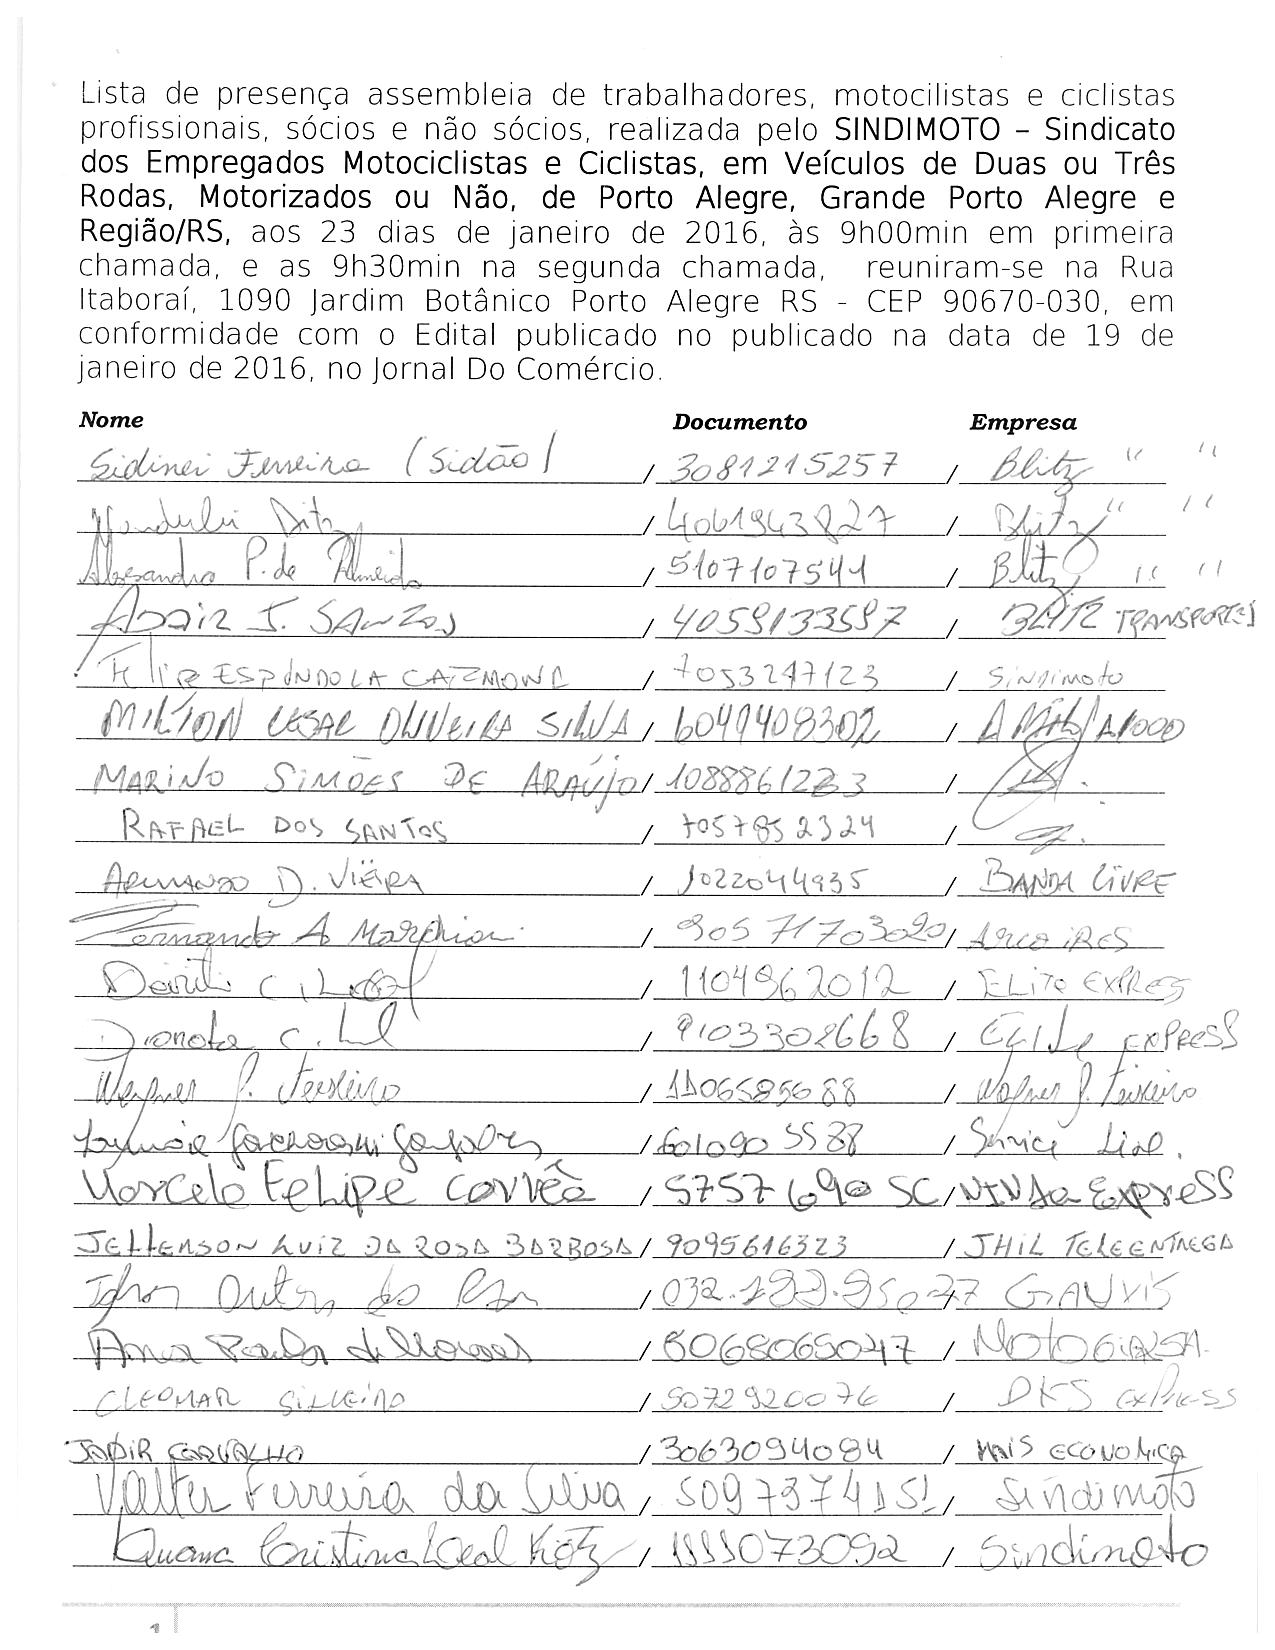 Lista de presença assembleia de trabalhadores, motocilistas e ciclistas
profissionais, sócios e não sócios, realizada pelo SINDIMOTO – Sindicato
dos Empregados Motociclistas e Ciclistas, em Veículos de Duas ou Três
Rodas, Motorizados ou Não, de Porto Alegre, Grande Porto Alegre e
Região/RS, aos 23 dias de janeiro de 2016, às 9h00min em primeira
chamada, e as 9h30min na segunda chamada, reuniram-se na Rua
Itaboraí, 1090 Jardim Botânico Porto Alegre RS - CEP 90670-030, em
conformidade com o Edital publicado no publicado na data de 19 de
janeiro de 2016, no Jornal Do Comércio.
Nome Documento Empresa
Sidinei Ferreira (Sidão) / 3081215257 / Blitz " "
/ 4061943827 / Blitz " "
Alessandro P. de Almeida / 5107107541 / Blitz " "
Adair J. Santos / 4059133597 / Blitz TRANSPORTES
Felipe ESPÍNDOLA / 7053247123 / Sindimoto
MILTON CESAR OLIVEIRA SILVA / 6049408302 /
MARINO SIMÕES DE ARAÚJO / /
RAFAEL DOS SANTOS / 7057852324 /
ARMANDO D. VIEIRA / 1022044935 / BANDA LIVRE
Fernando A Marchiori / 90571703020 / Arco IRES
C. / 1104962012 / ELITE EXPRES
C. / 9103302668 / EXPRESS
Wagner P. Teixeiro / 1106585688 / Wagner P. Teixeiro
/ 6010905588 / Service
Marcelo Felipe Corrêa / 5757690 SC / NINJA Express
JEFFERSON LUIZ DA ROSA BARBOSA / 9095616323 / JHIL TELEENTREGA
GAUVIS
Ana Paula de Moraes / 8068065047 /
CLEOMAR SILVEIRA / 5072920076 / DKS EXPRESS
JADIR CARVALHO / 3063094084 / MAIS ECONOMICA
Valter Ferreira da Silva / / Sindimoto
Luana Cristina Leal / 1111073092 / Sindimoto
1